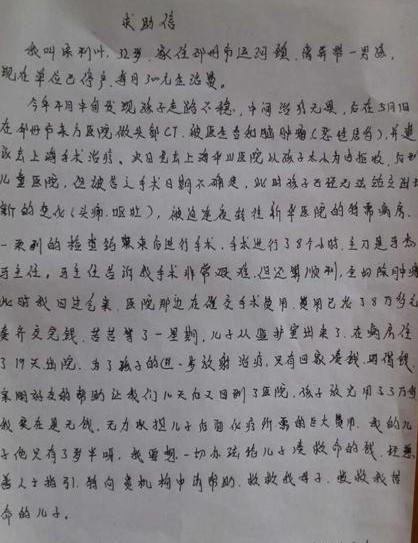 求助信
我叫 32岁,家住邳州市运河镇,离异带一男孩,
现在单位已停产,每月300元生活费。
今年 月中旬发现孩子走路不稳,中间治疗无果,后在3月1日
在邳州市东方医院做头部CT,被医生告知脑肿瘤(恶性居多),并建
议去上海手术治疗。次日先去上海华山医院以孩子太小为由拒收,后到
儿童医院,但被告之手术日期不确定,此时孩子
新的变化(头痛、呕吐),被迫连夜转往新华医院的特需病房。
一系列的检查结果来后进行手术,手术进行了8个小时,主刀是
马主任。马主任告诉我手术非常艰难,但还算顺利,全切除肿瘤
此时我 医院那边在催交手术费用,费用已花了8万多元
凑齐交完钱,苦苦等了一星期,儿子从监护室出来了,在病房住
了19天出院。为了孩子的进一步放射治疗,只有回家凑钱、四借钱,
亲朋好友的帮助让我们几天后又回到了医院,孩子放完用了3万多
我实在是无钱,无力承担儿子后面化疗所需的巨大费用。我的儿
子他只有3岁半呀,我要想一切办法给儿子凑救命的钱,经
善人士指引,特向贵机构申请帮助,救救我母子,救救我苦
命的儿子。